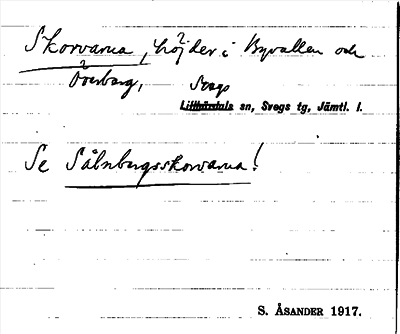 Skorvarna, höjder i Byvallen och
Överberg, Svegs
Lillhärdals sn, Svegs tg, Jämtl. l.
Se Sålnbergsskorvarna!
S. ÅSANDER 1917.